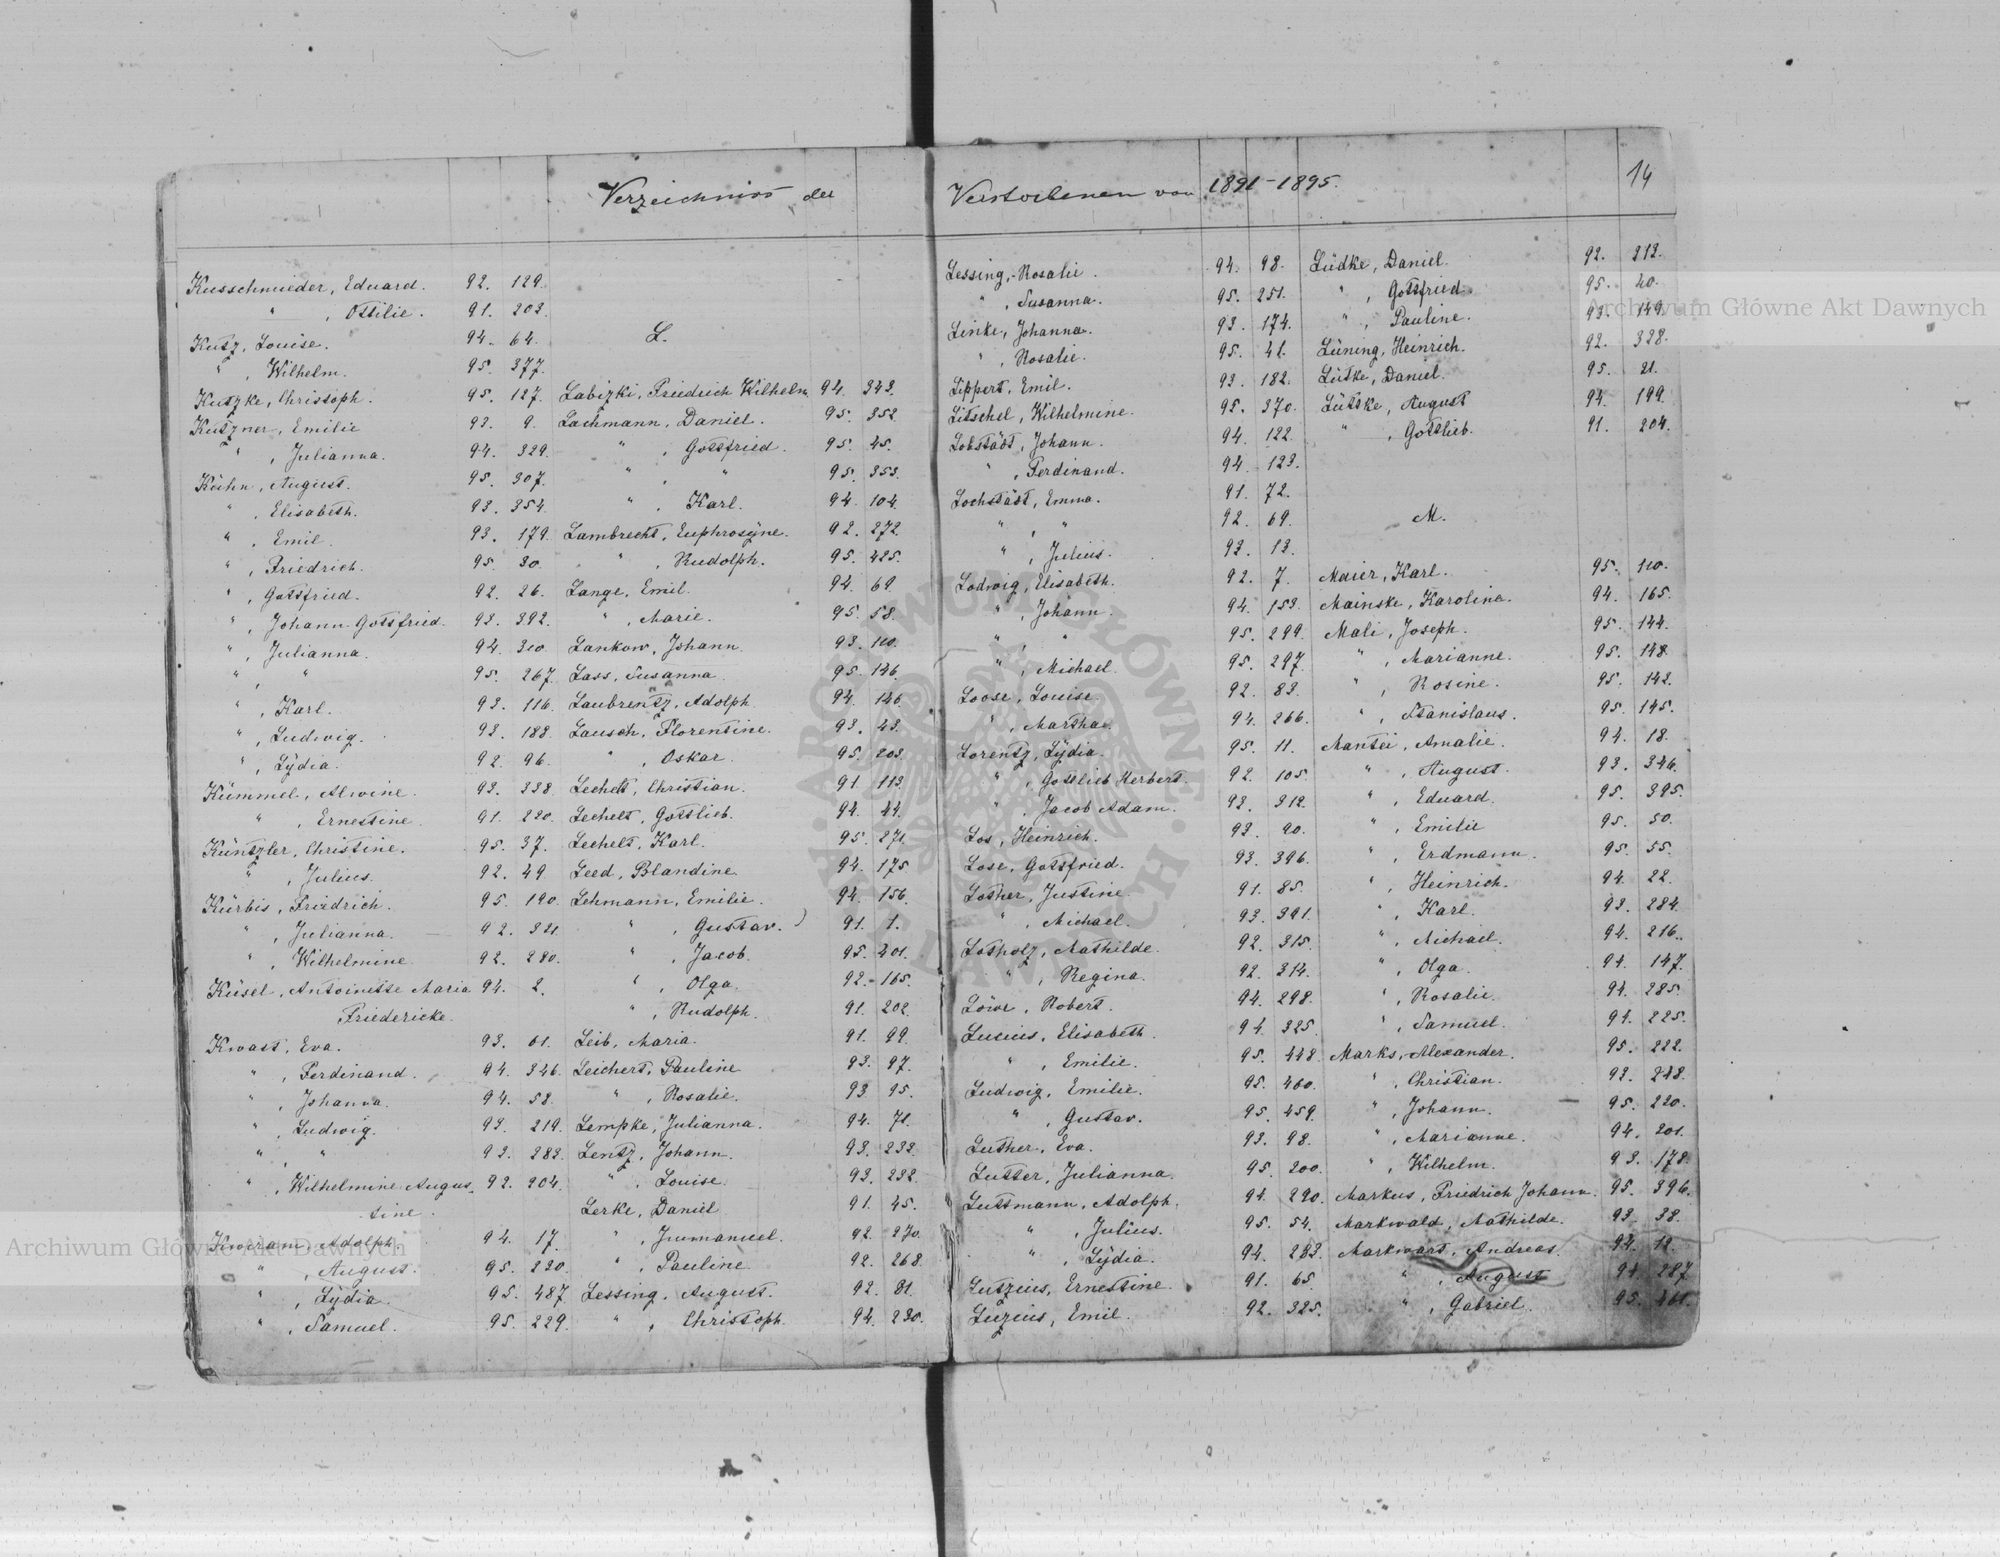 Verzeichniss der Verstorbenen von 1891-1895.
14
Kusschmieder, Eduard. 92. 129.
" , Ottilie. 91. 203.
Kutz, Louise. 94. 64.
" , Wilhelm. 95. 377.
Kutzke, Christoph. 95. 127.
Kutzner, Emilie 93. 9.
" , Julianna. 94. 329.
Kühn, August. 95. 307.
" , Elisabeth. 93. 354.
" , Emil. 93. 179.
" , Friedrich. 95. 30.
" , Gottfried. 92. 26.
" , Johann Gottfried. 93. 392.
" , Julianna. 94. 310.
" , " 95. 267.
" , Karl. 93. 116.
" , Ludwig. 93. 188.
" , Lÿdia. 92. 96.
Kümmel, Alwine. 93. 338.
" , Ernestine. 91. 220.
Küntzler, Christine. 95. 37.
" , Julius. 92. 49.
Kürbis, Friedrich. 95. 190.
" , Julianna. 92. 321.
" , Wilhelmine. 92. 280.
Küsel, Antoinette Maria 94. 2.
Friedericke.
Kwast, Eva. 93. 61.
" , Ferdinand. 94. 346.
" , Johanna. 94. 58.
" , Ludwig. 93. 219.
" , " 93. 283.
" , Wilhelmine Augus- 92. 204.
tine.
Kwiram, Adolph. 94. 17.
" , August. 95. 230.
" , Lÿdia. 95. 487.
" , Samuel. 95. 229.
L.
Labizki, Friedrich Wilhelm 94. 343.
Lachmann, Daniel. 95. 352.
" , Gottfried. 95. 45.
" , " 95. 353.
" , Karl. 94. 104.
Lambrecht, Euphrosÿne. 92. 272.
" , Rudolph. 95. 425.
Lange, Emil. 94. 69.
" , Marie. 95. 58.
Lankow, Johann 93. 110.
Lass, Susanna. 95. 146.
Laubrentz, Adolph. 94. 146.
Lausch, Florentine. 93. 43.
" , Oskar. 95. 203.
Lechelt, Christian. 91. 113.
Lechelt, Gottlieb. 94. 44.
Lechelt, Karl. 95. 271.
Leed, Blandine. 94. 175.
Lehmann, Emilie. 94. 156.
" , Gustav. 91. 1.
" , Jacob. 95. 401.
" , Olga. 92. 165.
" , Rudolph. 91. 202.
Leib, Maria. 91. 99.
Leichert, Pauline 93. 97.
" , Rosalie. 93. 95.
Lempke, Julianna. 94. 71.
Lentz, Johann. 93. 233.
" , Louise. 93. 232.
Lerke, Daniel 91. 45.
" , Immanuel. 92. 270.
" , Pauline 92. 268.
Lessing, August. 92. 81.
" , Christoph. 94. 230.
Lessing, Rosalie. 94. 98.
" , Susanna. 95. 251.
Linke, Johanna. 93. 174.
" , Rosalie. 95. 41.
Lippert, Emil. 93. 182.
Litschel, Wilhelmine. 95. 370.
Lobstädt, Johann. 94. 122.
" , Ferdinand. 94. 123.
Lochstädt, Emma. 91. 72.
" , " 92. 69.
" , Julius. 93. 13.
Lodwig, Elisabeth. 92. 7.
" , Johann. 94. 153.
" , " 95. 299.
" , Michael. 95. 297.
Loose, Louise. 92. 83.
" , Martha. 94. 266.
Lorentz, Lÿdia. 95. 11.
" , Gottlieb Herbert. 92. 105.
" , Jacob Adam. 93. 312.
Los, Heinrich. 93. 90.
Lose, Gottfried. 93. 396.
Lother, Justine. 91. 85.
" , Michael. 93. 391.
Lotholz, Mathilde. 92. 315.
" , Regina. 92. 314.
Löwe, Robert. 94. 298.
Lucius, Elisabeth. 94. 325.
" , Emilie. 95. 448.
Ludwig, Emilie. 95. 460.
" , Gustav. 95. 459.
Luther, Eva. 93. 98.
Lutter, Julianna. 95. 200.
Luttmann, Adolph. 94. 290.
" , Julius. 95. 54.
" , Lÿdia. 94. 283.
Lutzius, Ernestine. 91. 65.
Luzius, Emil. 92. 325.
Lüdke, Daniel. 92. 313.
" , Gottfried. 95. 40.
" , Pauline. 93. 149.
Lüning, Heinrich. 92. 328.
Lütke, Daniel. 95. 21.
Lüttke, August 94. 199.
" , Gottlieb. 91. 204.
M.
Maier, Karl. 95. 110.
Mainske, Karoline. 94. 165.
Mali, Joseph. 95. 144.
" , Marianne. 95. 148.
" , Rosine. 95. 143.
" , Stanislaus. 95. 145.
Mantei, Amalie. 94. 18.
" , August. 93. 346.
" , Eduard. 95. 395.
" , Emilie 95. 50.
" , Erdmann. 95. 55.
" , Heinrich. 94. 22.
" , Karl. 93. 284.
" , Michael. 94. 216.
" , Olga. 94. 147.
" , Rosalie. 94. 285.
" , Samuel. 94. 225.
Marks, Alexander. 95. 222.
" , Christian. 93. 248.
" , Johann. 95. 220.
" , Marianne. 94. 201.
" , Wilhelm. 93. 178.
Markus, Friedrich Johann. 95. 396.
Markwald, Mathilde. 93. 38.
Markwart, Andreas. 94. 12.
" , August 94. 287.
" , Gabriel. 95. 461.
Archiwum Główne Akt Dawnych
Archiwum Główne Akt Dawnych
ARCHIWUM GŁÓWNE AKT DAWNYCH